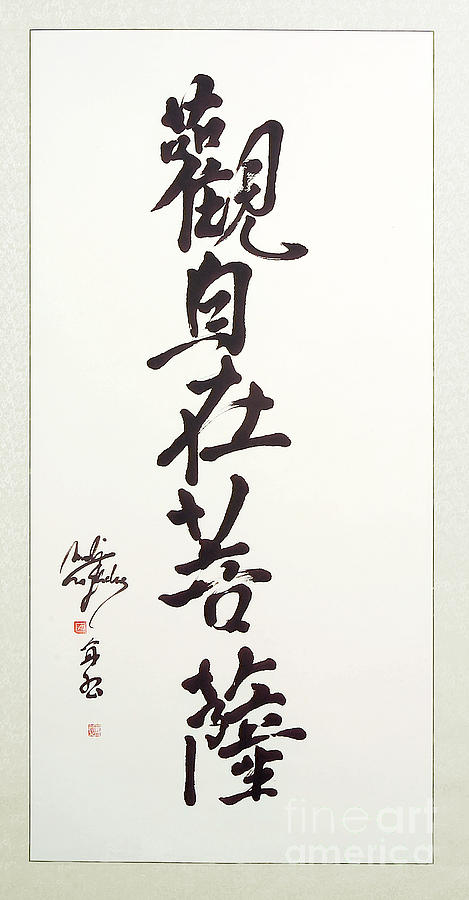 觀自在菩薩
fine art
america